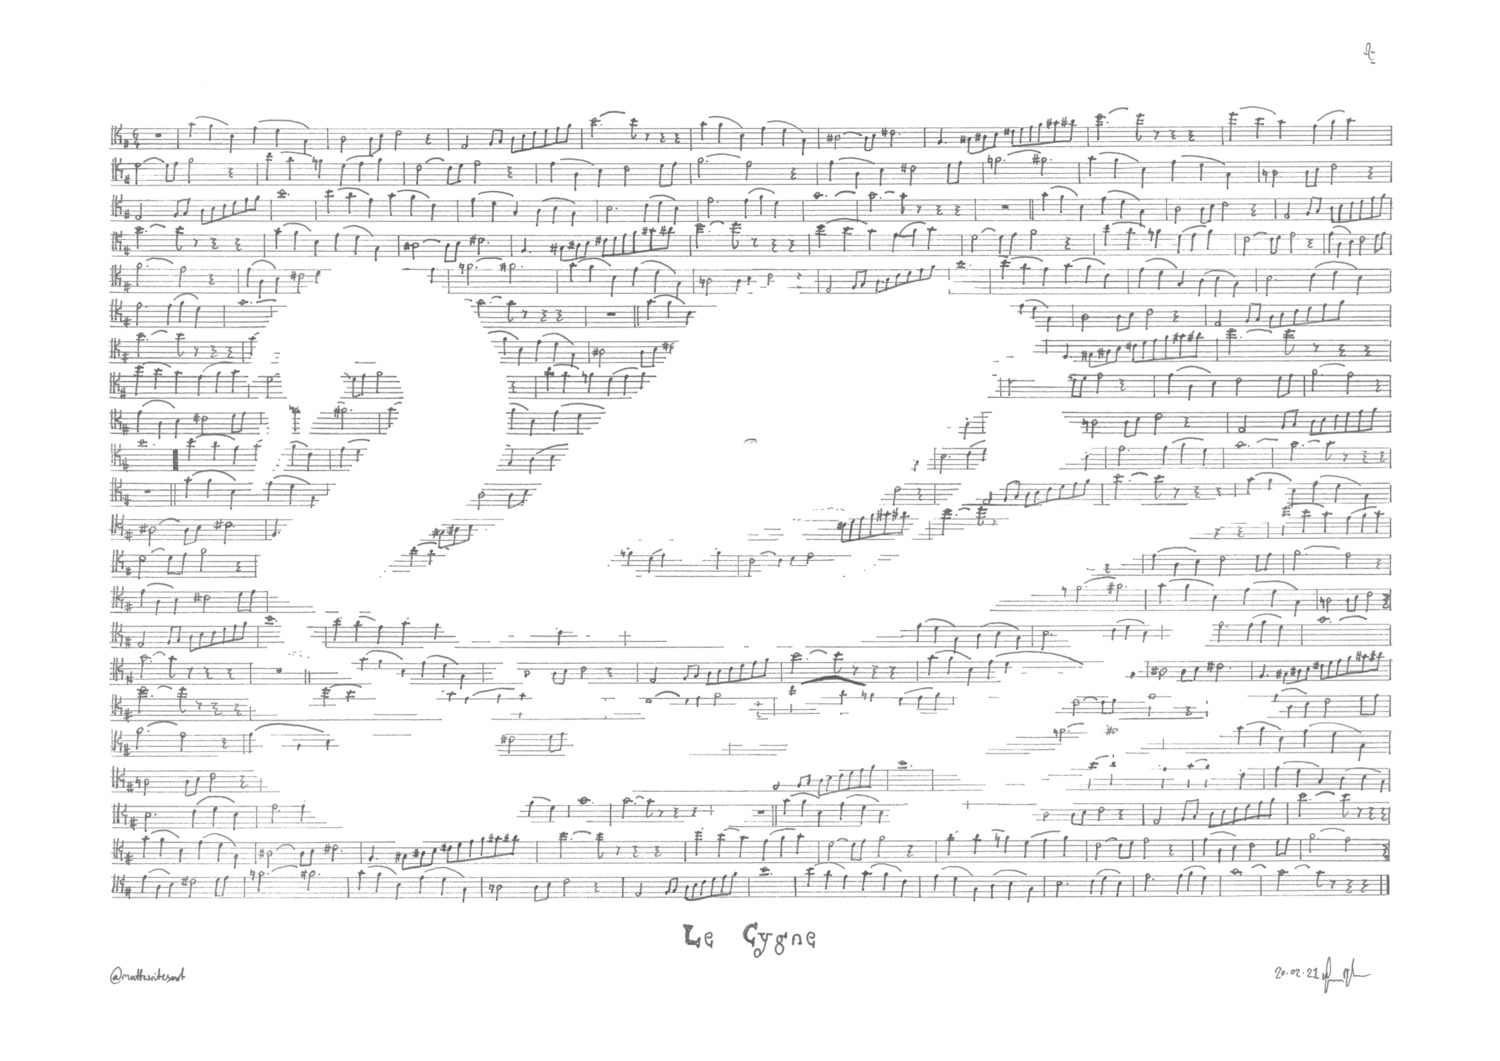 Le Cygne
@mattwritesart
20.02.21